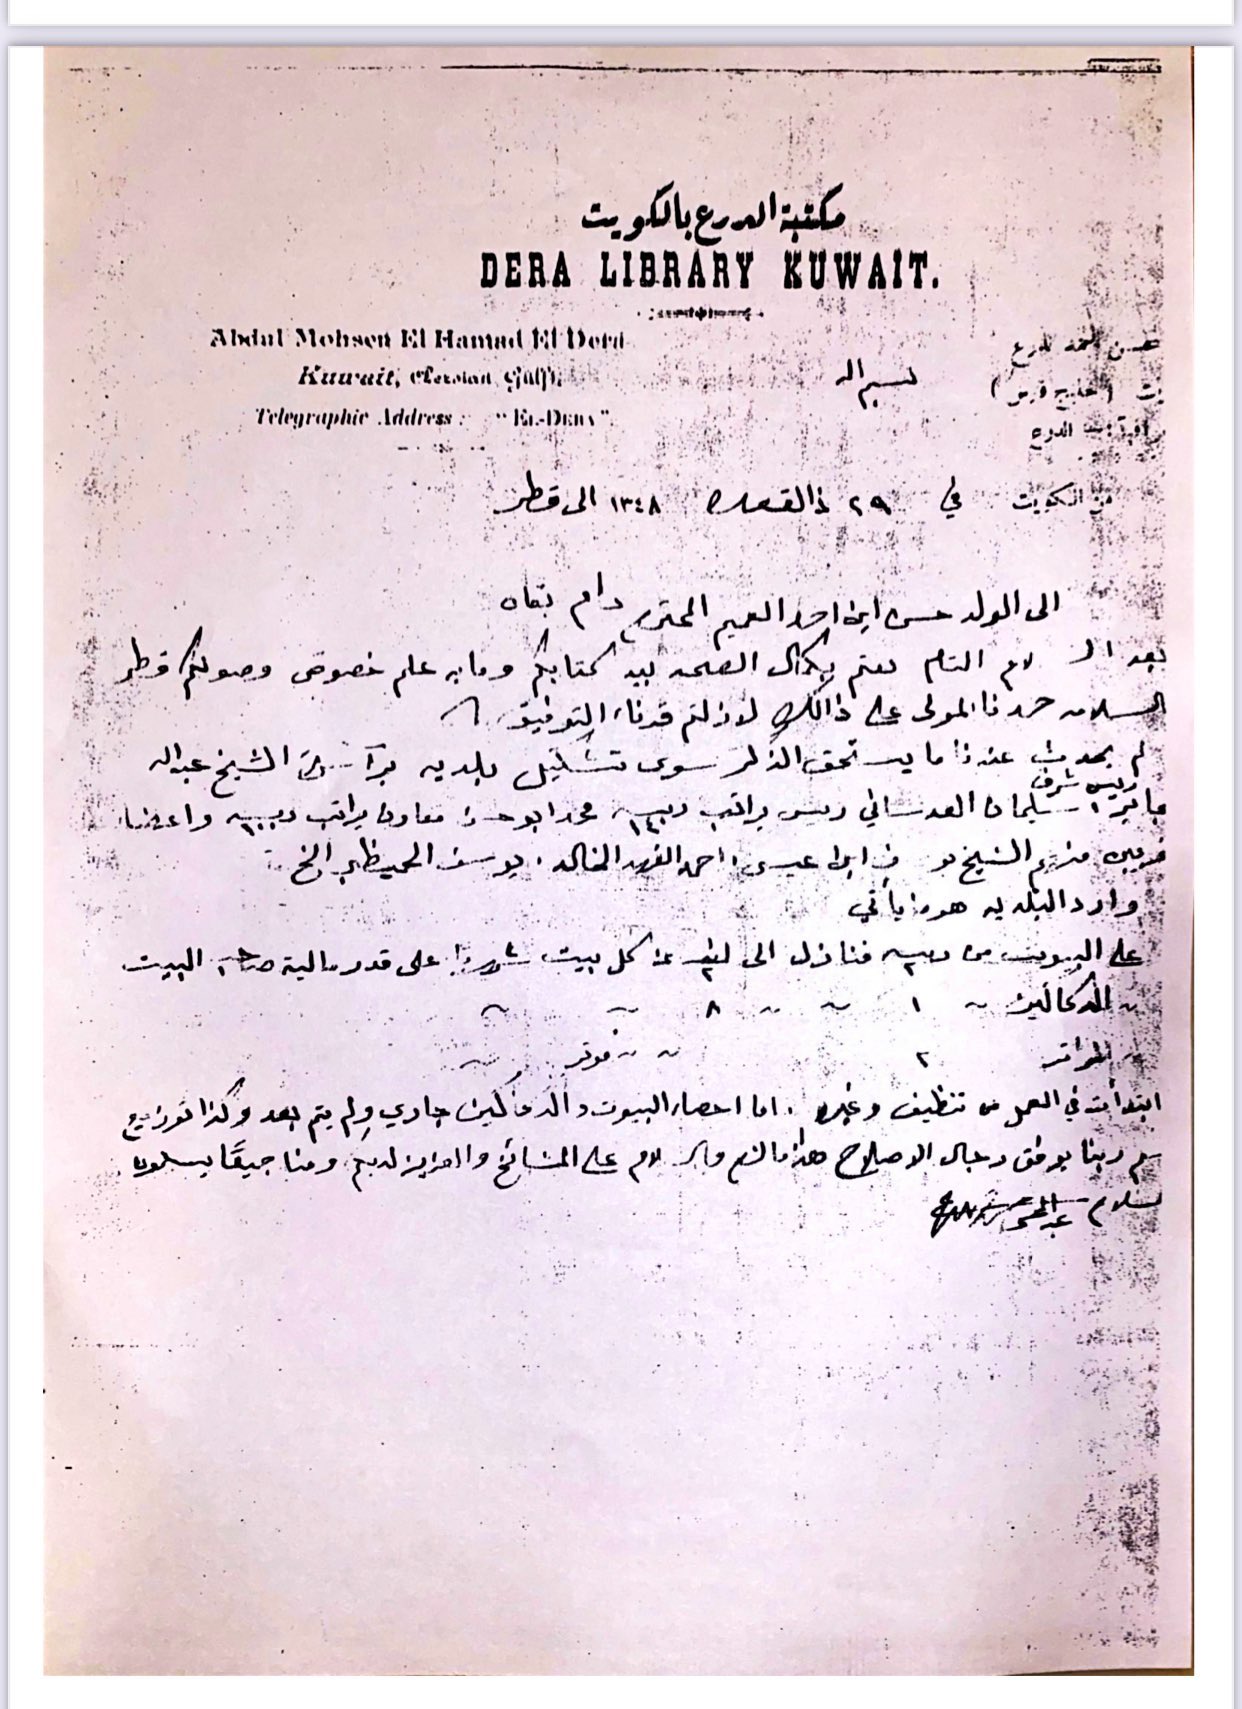 مكتبة الدرع بالكويت
DERA LIBRARY KUWAIT.
Abdul Mohsen El Hamad El Dera
Kuwait, (Persian Gulf)
Telegraphic Address: "EL-DERA"
الحمد الدرع
(خليج فارس)
الدرع
بسم الله
من الكويت في ٢٩ ذالقعده ١٣٤٨ الى قطر
الى الولد حسن ابن احمد المحترم دام بقاه
بعد السلام التام دمتم بكمال الصحه بيد كتابكم وما به علم خصوص وصولكم قطر
السلامه حمدنا المولى على ذالك لازلتم قرناء التوفيق
لم يحدث عندنا ما يستحق الذكر سوى تشكيل بلديه برآسة الشيخ عبدالله
ريس شرف
جابر سليمان العدساني ريس براتب ربيه ١٤٠ محمد ابو معاون براتب ربيه واعضاء
منهم الشيخ يوسف ابن عيسى، احمد الفهد الخالد، يوسف الحميظي الخ
وارد البلديه هو ما يأتي
على البيوت من ربيه ٢ فنازل الى من كل بيت شهريا على قدر مالية صاحب البيت
〃 الدكاكين 〃 ١ 〃 〃 ٨ 〃 〃
〃 المواتر ٢ 〃 〃 موتر 〃
ابتدأت في العمل من تنظيف وغيره. اما احصاء البيوت والدكاكين جاري ولم يتم بعد وكذا توزيع
ربنا يوفق رجال الاصلاح هذا ما لزم والسلام على المشائخ والعزيز لديكم ومنا جميعًا يسلمون
سلام عبدالمحسن